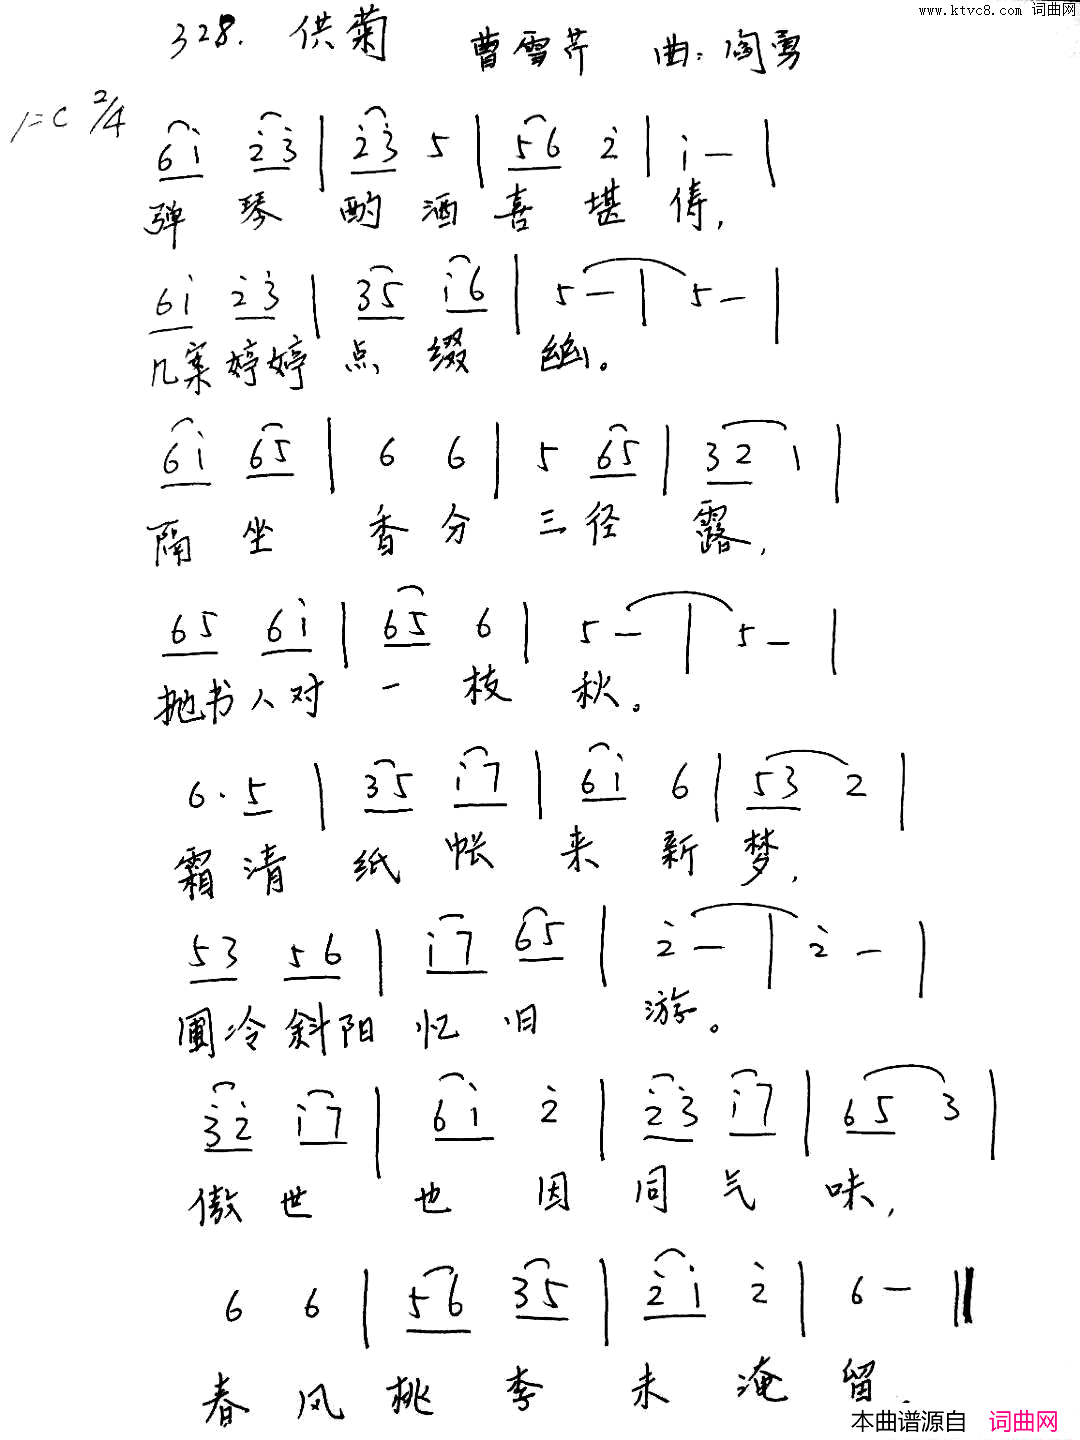 www.ktvc8.com 词曲网
328. 供菊 曹雪芹 曲：陶勇
1=C 2/4
6i 2̇3̇ | 2̇3̇ 5 | 56 2̇ | i － |
弹 琴 酌 酒 喜 堪 俦，
6i 2̇3̇ | 35 i6 | 5 － | 5 － |
几案婷婷 点 缀 幽。
6i 65 | 6 6 | 5 65 | 32 1 |
隔 坐 香 分 三 径 露，
65 6i | 65 6 | 5 － | 5 － |
抛书人对 一 枝 秋。
6· 5 | 35 i7 | 6i 6 | 53 2 |
霜 清 纸 帐 来 新 梦，
53 56 | i7 65 | 2̇ － | 2̇ － |
圃冷斜阳 忆 旧 游。
3̇2̇ i7 | 6i 2̇ | 2̇3̇ i7 | 65 3 |
傲 世 也 因 同 气 味，
6 6 | 56 35 | 2̇i 2̇ | 6 － ‖
春 风 桃 李 未 淹 留.
本曲谱源自 词曲网